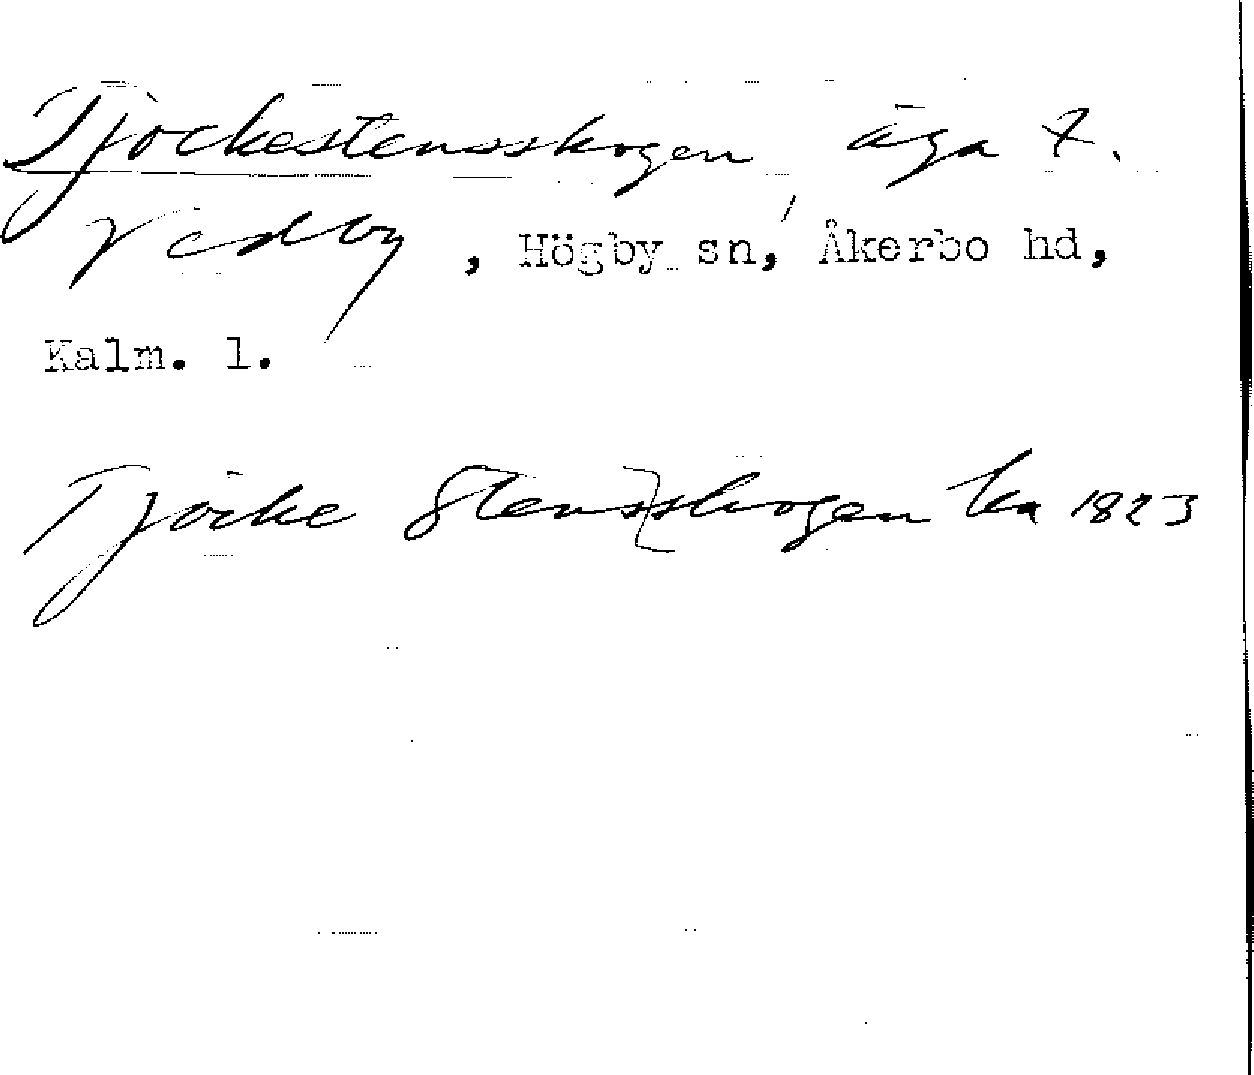 Tjockestensskogen, äga t.
Vedby, Högby sn, Åkerbo hd,
Kalm. l.
Tjöcke Stensskogen ka 1823